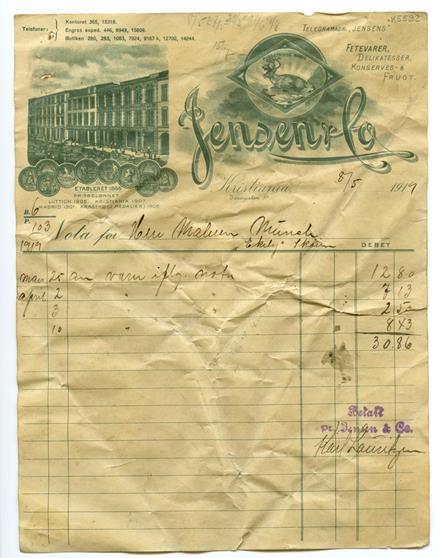 K5592
Telefoner:
Kontoret 365, 15318.
Engros exped. 446, 8949, 15806.
Butiken 280, 283, 1083, 7924, 9167 k, 12700, 14244.
TELEGRAMADR. "JENSENS"
FETEVARER,
DELIKATESSER,
KONSERVES- &
FRUGT.
Jensen & Co
ETABLERET 1866
PRISBELØNNET
LÜTTICH 1905. KRISTIANIA 1907.
Kristiania 8/5 1919
B. 6
F. 103
1919
Nota for Herr Maleren Münch
"Ekely" Skøien
DEBET
mars 25 an varer iflg. nota 12 80
april 2 " " " 7 13
3 " " " 2 50
10 " " " 8 43
30.86
Betalt
pr. Jensen & Co.